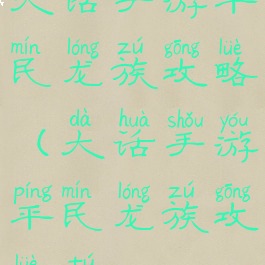 大话手游平
mín lóng zú gōng lüè
民龙族攻略
dà huà shǒu yóu
（大话手游
píng mín lóng zú gōng
平民龙族攻
lüè zú